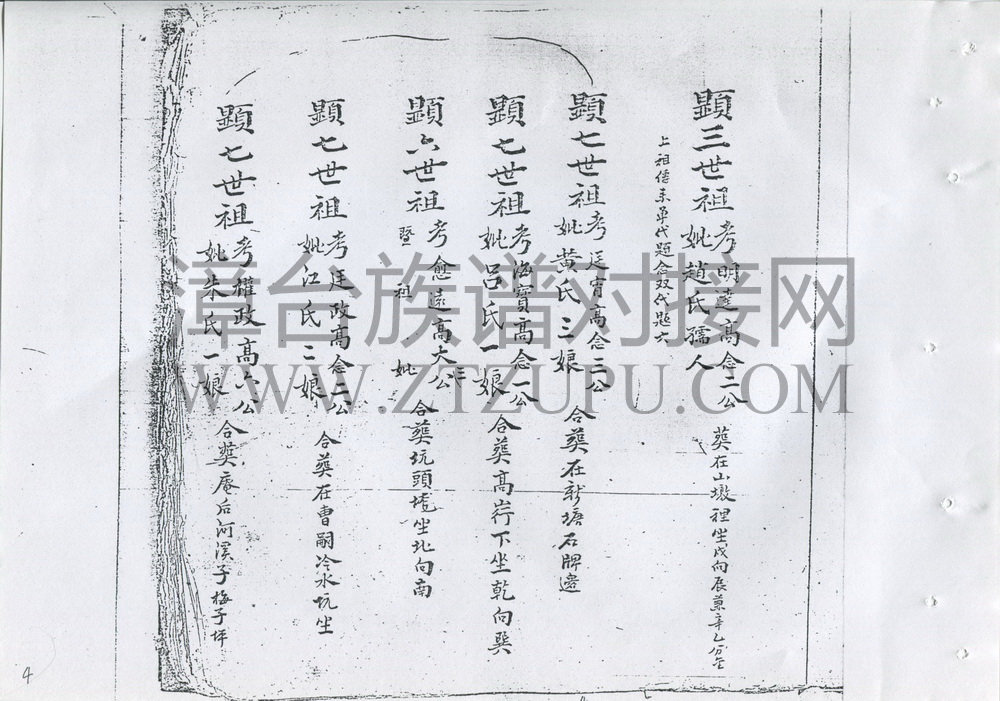 顯三世祖考明達高念二公
妣趙氏孺人
葬在山墩裡坐戌向辰兼辛乙分金
上祖俻未單代題會双代題六
顯七世祖考廷宵高念三公
妣黄氏三娘
合葬在新塘石牌邊
顯七世祖考海寶高念一公
妣呂氏一娘
合葬高岸下坐乾向巽
顯六世祖考愈遠高大三公
暨祖妣
合葬坑頭埯坐北向南
顯七世祖考廷政高念二公
妣江氏二娘
合葬在曹嗣冷水坑坐
顯七世祖考權政高六公
妣朱氏一娘
合葬庵后河溪子梅子坪
4
漳台族谱对接网
WWW.ZTZUPU.COM